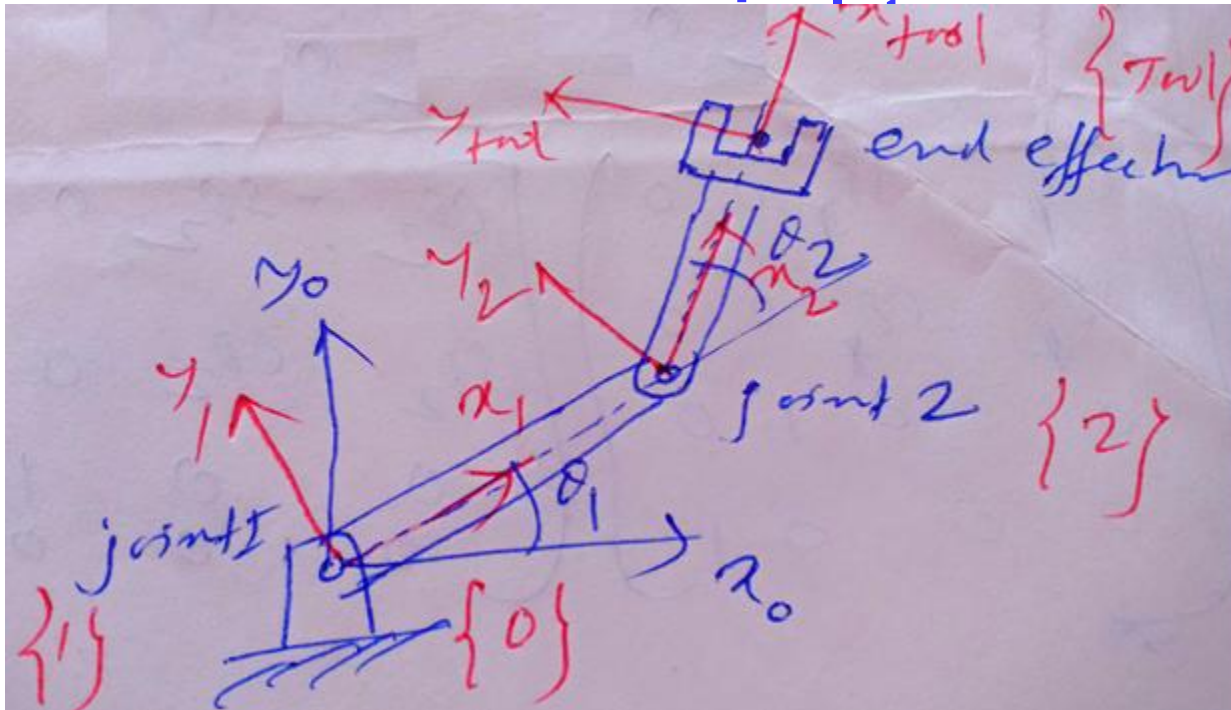 x tool
{Tool}
y tool
end effector
θ2
y2
x2
y0
y1
x1
joint 2
{2}
θ1
joint1
x0
{1}
{0}